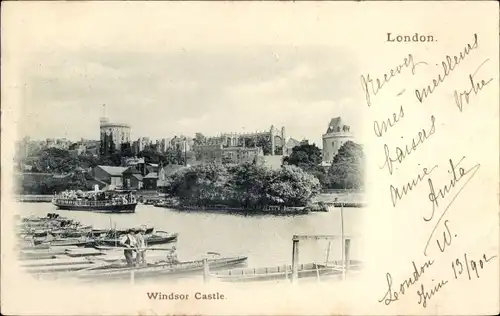 London.
Recevez
mes meilleurs
baisers. Votre
amie Anita
London W.
Juin 13/1902
Windsor Castle.